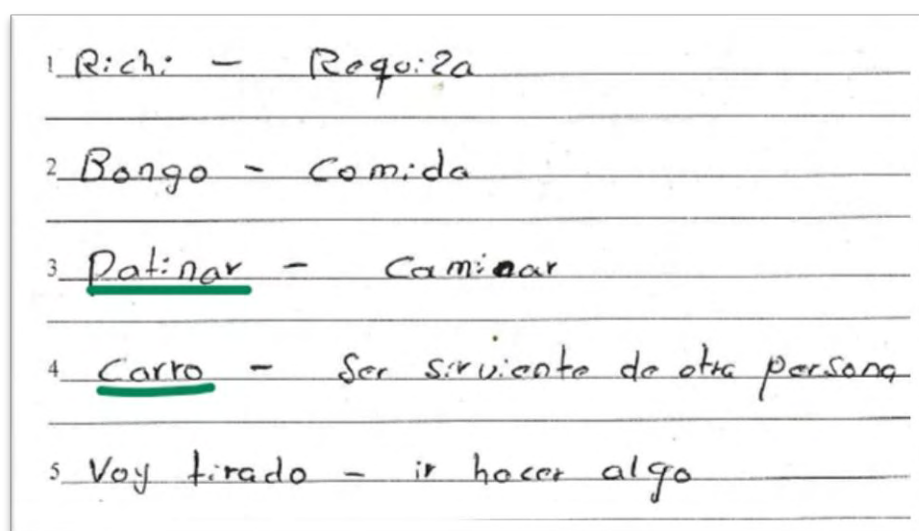 1 Richi - Requiza
2 Bongo - Comida
3 Patinar - Caminar
4 Carro - Ser sirviente de otra persona
5 Voy tirado - ir hacer algo